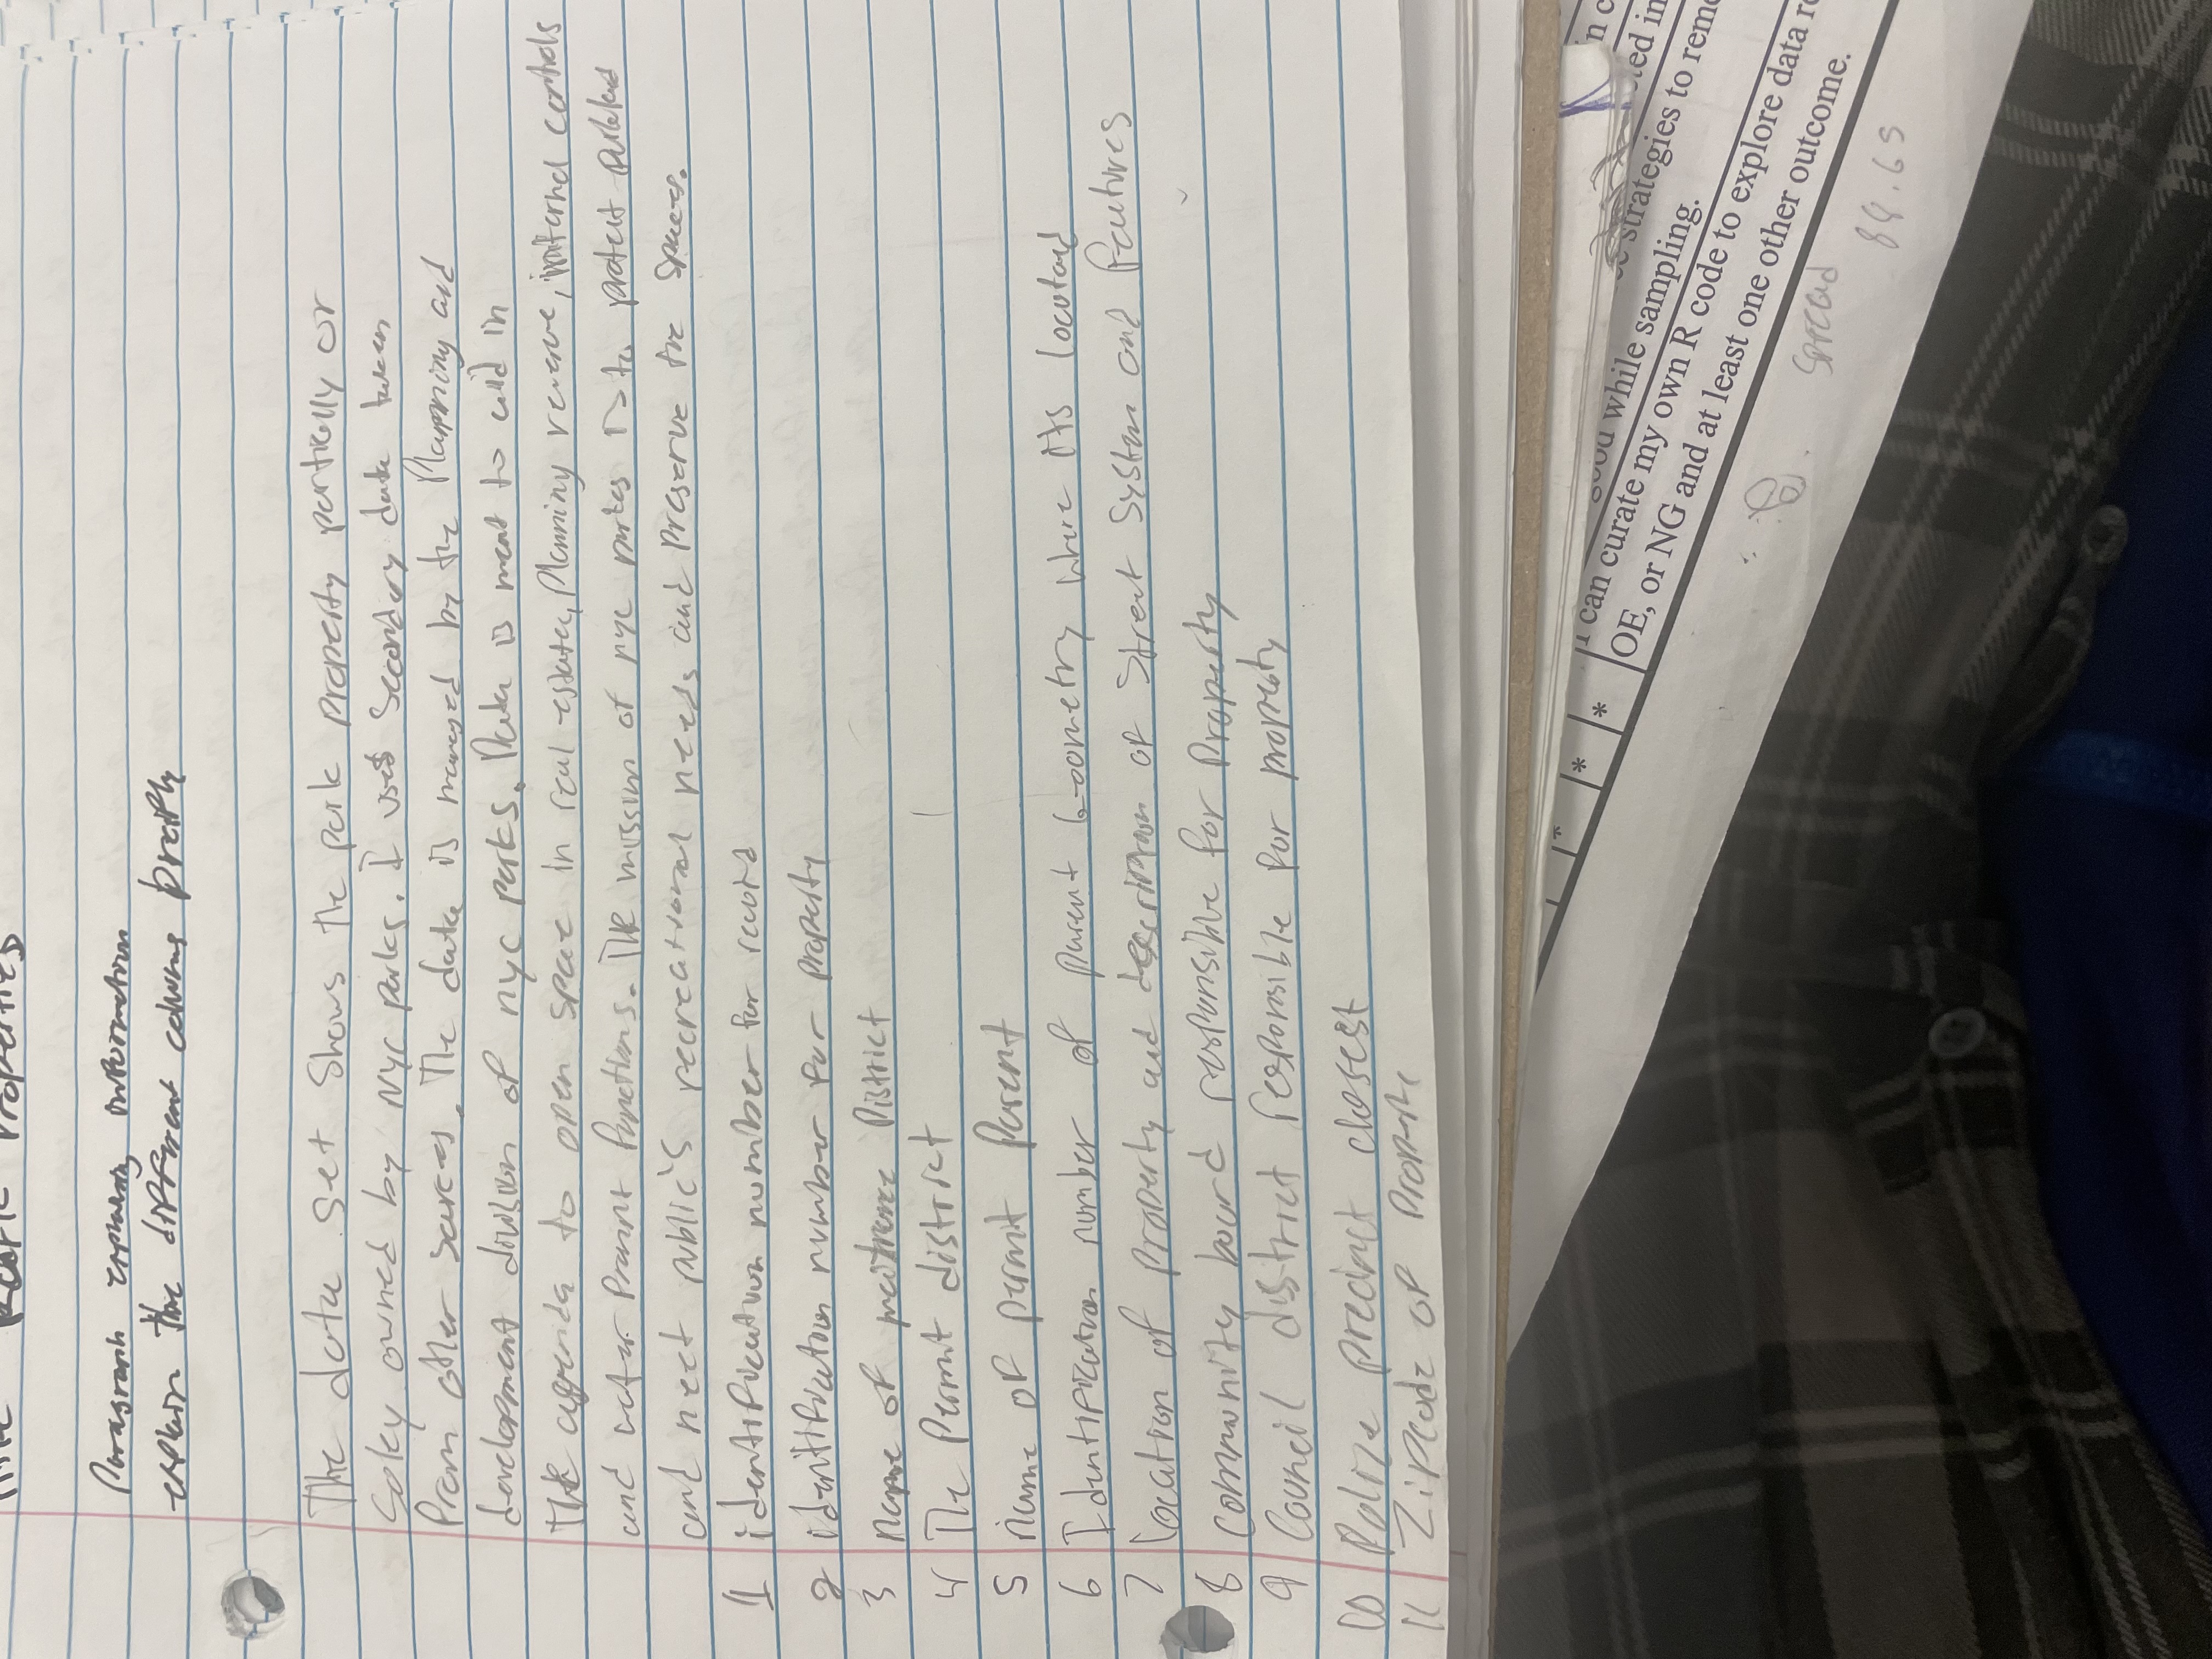 Title Park Properties
Paragraph explaining information
explain the different columns breifly
The data set shows the park property partially or
soley owned by NYC parks. I used Secondary data taken
from other sources. The data is managed by the Plannning and
development division of nyc parks. Data is meant to aid in
the agenda to open space in real estate, Planning revenue, internal controls
and other Permit functions. The mission of nyc parks is to protect parkland
and meet public's recreational needs and preserve the spaces.
1 identification number for record
2 identification number for property
3 name of District
4 The Permit district
5 name of permit Parent
6 Identification number of parent Geometry where its located
7 location of property and description of Street System and features
8 community board responsible for Property
9 Council district responsible for property
10 Police precinct closest
11 Zipcode of Property
* * * I can curate my own R code to explore data re
good while sampling.
strategies to remo
OE, or NG and at least one other outcome.
n c
ted in
8.
Spread
88.65